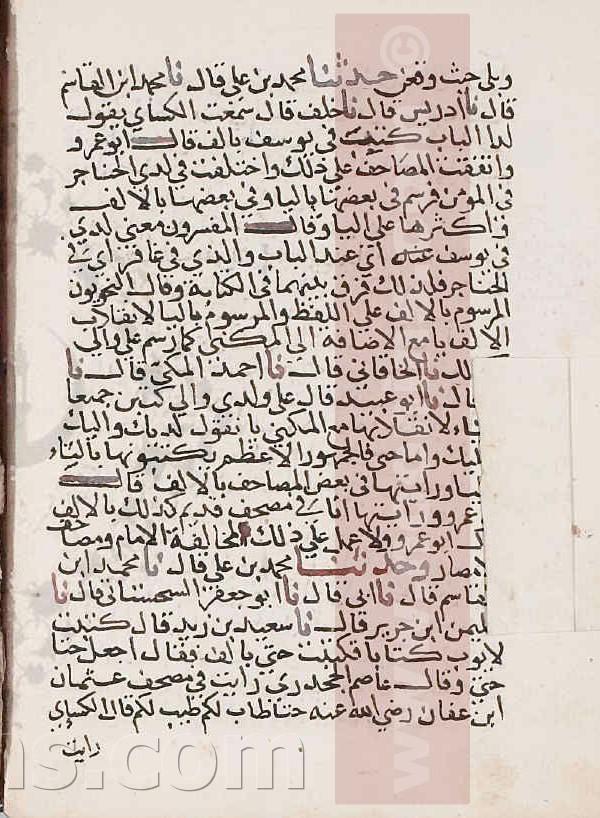 وبلى حيث وقعن حدثنا محمد بن علي قال نا محمد ابن القاسم
قال نا ادريس قال نا خلف قال سمعت الكساي يقول
لدا الباب كتبت في يوسف بالف قال ابو عمرو
واتفقت المصاحف على ذلك واختلفت في لدي الحناجر
في المؤمن فرسم في بعضها باليا وفي بعضها بالالف
واكثرها على اليا وقال المفسرون معنى لدي
في يوسف عند اي عند الباب والذي في غافر اي في
الحناجر فلذلك فرق بينهما في الكتابة وقال النحويون
المرسوم بالالف على اللفظ والمرسوم باليا لانقلاب
الالف يا مع الاضافه الى المكني كما رسم على والى
لك نا الخاقاني قال نا احمد المكي قال نا
قال نا ابو عبيد قال على ولدي والى كتبن جميعا
ياء لانقلابها مع المكني يا تقول لديك واليك
ليك واما حتى فالجمهور الاعظم يكتبونها بالياء
ورايتها في بعض المصاحف بالالف قال
عمرو ورايتها انا في مصحف قديم كذلك بالالف
ابو عمرو ولا عمل على ذلك لمخالفة الامام ومصاحف
لامصار وحدثنا محمد بن علي قال نا محمد ابن
لقاسم قال نا ابي قال نا ابو جعفر السجستاني قال نا
ليمن ابن حرير قال نا سعيد بن زيد قال كتبت
لايوب كتابا فكتبت حتى بالف فقال اجعل حتا
حتى وقال عاصم الجحدري رايت في مصحف عثمان
ابن عفان رضي الله عنه حتا طاب لكم طيب لكم قال الكساي
رايت
www.
ns.com